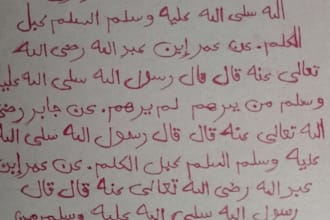 الله صلى الله عليه وسلم السلم قبل
الكلم. عن عمر إبن عبد الله رضى الله
تعالى عنه قال قال رسول الله صلى الله عليه
وسلم من يرهم لم يرهم. عن جابر رضى
الله تعالى عنه قال قال رسول الله صلى الله
عليه وسلم السلم قبل الكلم. عن عمر إبن
عبد الله رضى الله تعالى عنه قال قال
رسول الله صلى الله عليه وسلم من